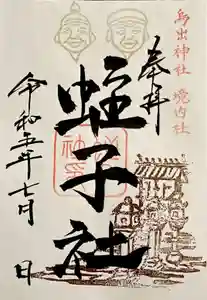 鳥出神社 境内社
奉拝
蛭子社
令和五年七月 日